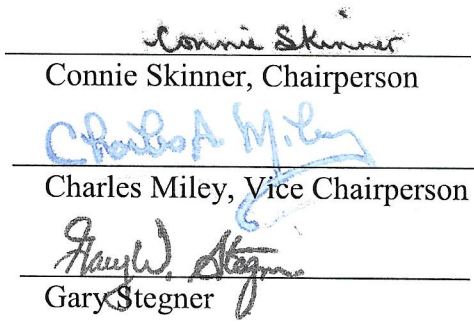 Connie Skinner
Connie Skinner, Chairperson
Charles A. Miley
Charles Miley, Vice Chairperson
Gary W. Stegner
Gary Stegner